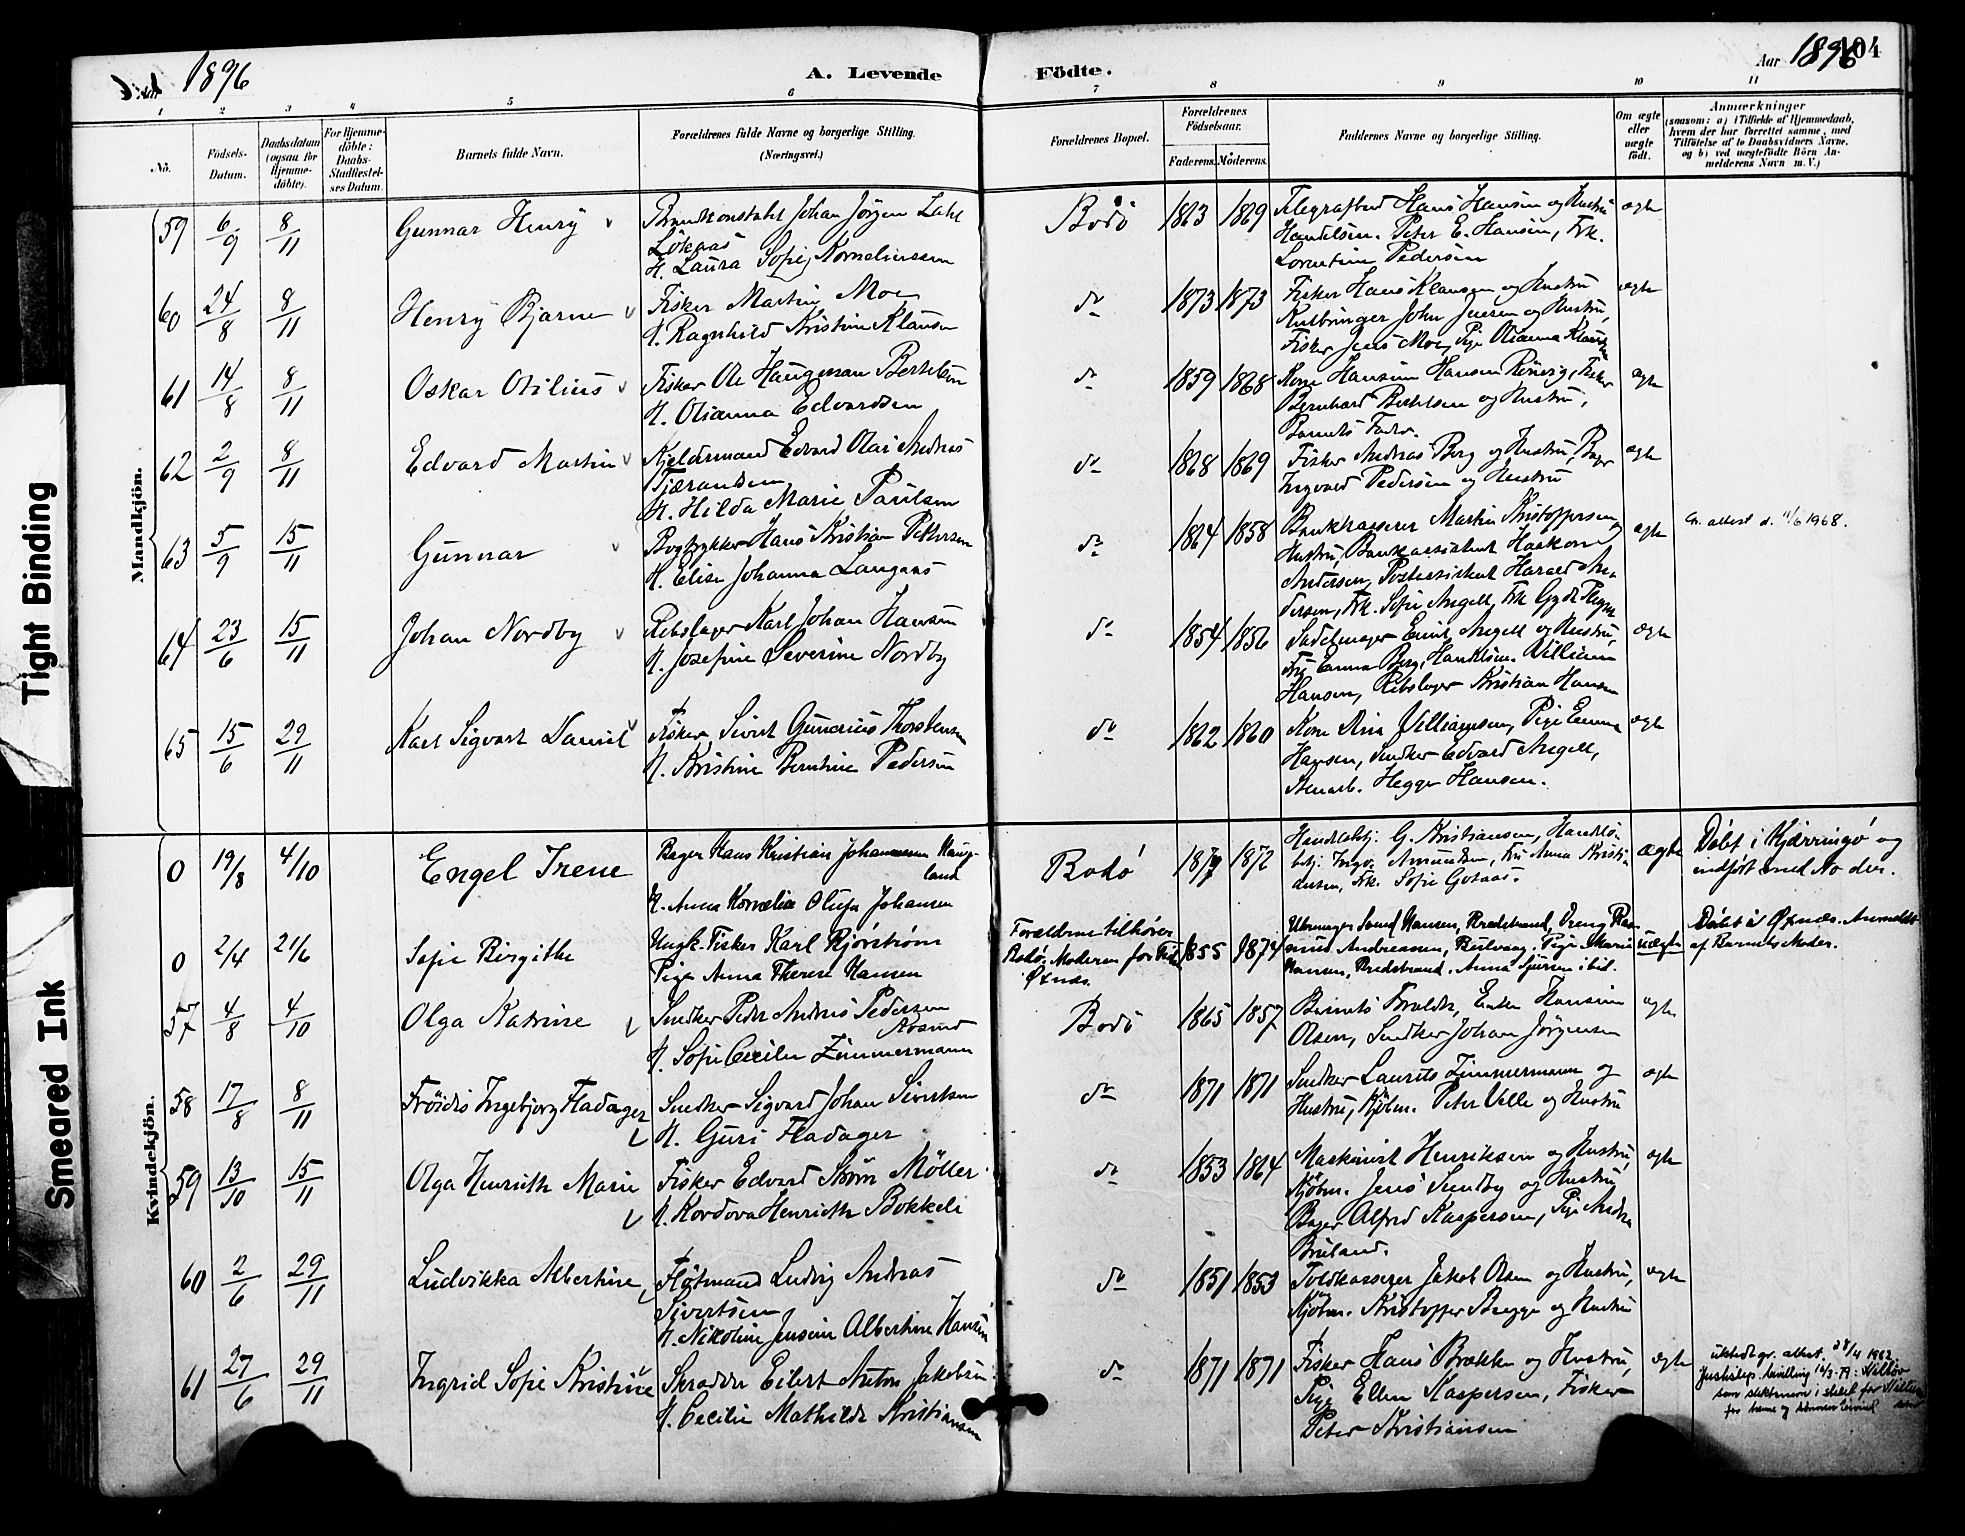 Aar 1896
A. Levende
Födte.
Aar 1896
104
1 2 3 4 5 6 7 8 9 10 11
No.
Födsels-
Datum.
Daabsdatum
(ogsaa for
Hjemme-
döbte).
For Hjemme-
döbte:
Daabs-
Stadfæstel-
ses Datum.
Barnets fulde Navn.
Forældrenes fulde Navne og borgerlige Stilling.
(Næringsvei.)
Forældrenes Bopæl.
Forældrenes
Födselsaar.
Faderens. Moderens.
Faddernes Navne og borgerlige Stilling.
Om ægte
eller
uægte
født.
Anmærkninger
(saasom: a) i Tilfælde af Hjemmedaab,
hvem der har forrettet samme, med
Tilföielse af to Daabsvidners Navne,
og b) ved uægtefödte Börn An-
melderens Navn m. V.)
Mandkjön.
59 6/9 8/11 Gunnar Henry
Brandkonstabel Johan Jørgen
Løkaas
H. Laura Sofie Korneliussen
Bodö 1863 1869
Telegrafbud Hans Hansen og Hustru
Handelsm. Peter E. Hansen, Frk.
Pedersen
ægte
60 24/8 8/11 Henry Bjarne
Fisker Martin Moe
H. Ragnhild Kristine Klausen
do 1873 1873
Fisker Hans Klausen og Hustru
John Jensen og Hustru,
Fisker Jens Moe, Pige Olianna Klausen
ægte
61 14/8 8/11 Oskar Otilius
Fisker Ole Haugman Bertelsen
H. Olianna Edvardsen
do 1859 1868
Kone Hansine Hansen Rönvig, Fisker
Bernhard Bertelsen og Hustru,
Barnets Fader.
ægte
62 2/9 8/11 Edvard Martin
Kjeldermand Edvard Olai Andreas
Tjærandsen
H. Hilda Marie Paulsen
do 1868 1869
Fisker Andreas Berg og Hustru, Bager
Ingvald Pedersen og Hustru
ægte
63 5/9 15/11 Gunnar
Bogtrykker Hans Kristian Pettersen
H. Elise Johanna Langaas
do 1864 1858
Bankkasserer Martin Kristoffersen og
Hustru, Bankassistent Haakon
Andersen, Postassistent Harald An-
dersen, Frk. Sofie Angell, Frk.
ægte
attest d. 11/6 1968.
64 23/6 15/11 Johan Nordby
Rebslager Karl Johan Hansen
H. Josefine Severine Nordby
do 1854 1856
Sadelmager Emil Angell og Hustru,
Emma Berg, Handelsm. William
Hansen, Rebslager Kristian Hansen
ægte
65 15/6 29/11 Karl Sigvart Daniel
Fisker Sivert Gunerius Thorstensen
H. Kristine Berntine Pedersen
do 1862 1860
Kone Villiamsen, Pige Emma
Hansen, Snedker Edvard Angell,
Stenarb. Hegger Hansen.
ægte
Kvindekjön.
0 19/8 4/10 Engel Irene
Bager Hans Kristian Johannesen Haug-
land
H. Anna Kornelia Olufa Johansen
Bodó 1872
Handelsbtj. G. Kristiansen, Handels-
btj. Ingv. Amundsen, Frk. Anna Kristi-
ansen, Frk. Sofie Gotaas.
ægte
Döbt i Kjærringö og
indført med No der.
0 2/4 21/6 Sofie Birgithe
Ungk. Fisker Karl Bjørstrøm
Pige Anna Therese Hansen
Forældrene tilhører
Bodø. Moderen for Tiden
Øxnæs.
1855 1874
Hansen, Bredstrand, Dreng
Andreassen, Pige Marie
Hansen, Bredstrand. Anna Sjursen ibid.
uægte
Döbt i Øxnæs. Anmeldt
af Barnets Moder.
57 4/8 4/10 Olga Katrine
Snedker Peder Andreas Pedersen
H. Sofie Cecilie Zimmermann
Bodö 1865 1857
Barnets Forældre, Enke Hansine
Olsen, Snedker Johan Jørgensen
ægte
58 17/8 8/11 Fröidis Ingebjorg Fladager
Snedker Sigvard Johan Sivertsen
H. Guri Fladager
do 1871 1871
Snedker Laurits Zimmermann og
Hustru, Kjöbm. Peter Velle og Hustru
ægte
59 13/10 15/11 Olga Henriette Marie
Fisker Edvard Strøm Möller
H. Kordova Henriette Bokkeli
do 1853 1864
Maskinist Henriksen og Hustru,
Kjöbm. Jens Sundby og Hustru,
Bager Alfred Kaspersen, Pige Andrea
Bruland.
ægte
60 2/6 29/11 Ludvikka Albertine
Fløtmand Ludvig Andreas
Sivertsen
H. Nikoline Jensine Albertine Hansen
do 1851 1853
Toldkasserer Jakob Olsen og Hustru,
Kjöbm. Kristoffer Brygge og Hustru
ægte
61 27/6 29/11 Ingrid Sofie Kristine
Skrædder Eilert Anton Jakobsen
H. Cecilie Mathilde Kristiansen
do 1871 1871
Fisker Hans Brækken og Hustru,
Pige Ellen Kaspersen, Fisker
Peter Kristiansen
ægte
utstedt gr. attest 28/4 1962
som slektsnavn i stedet for
Tight Binding
Smeared Ink